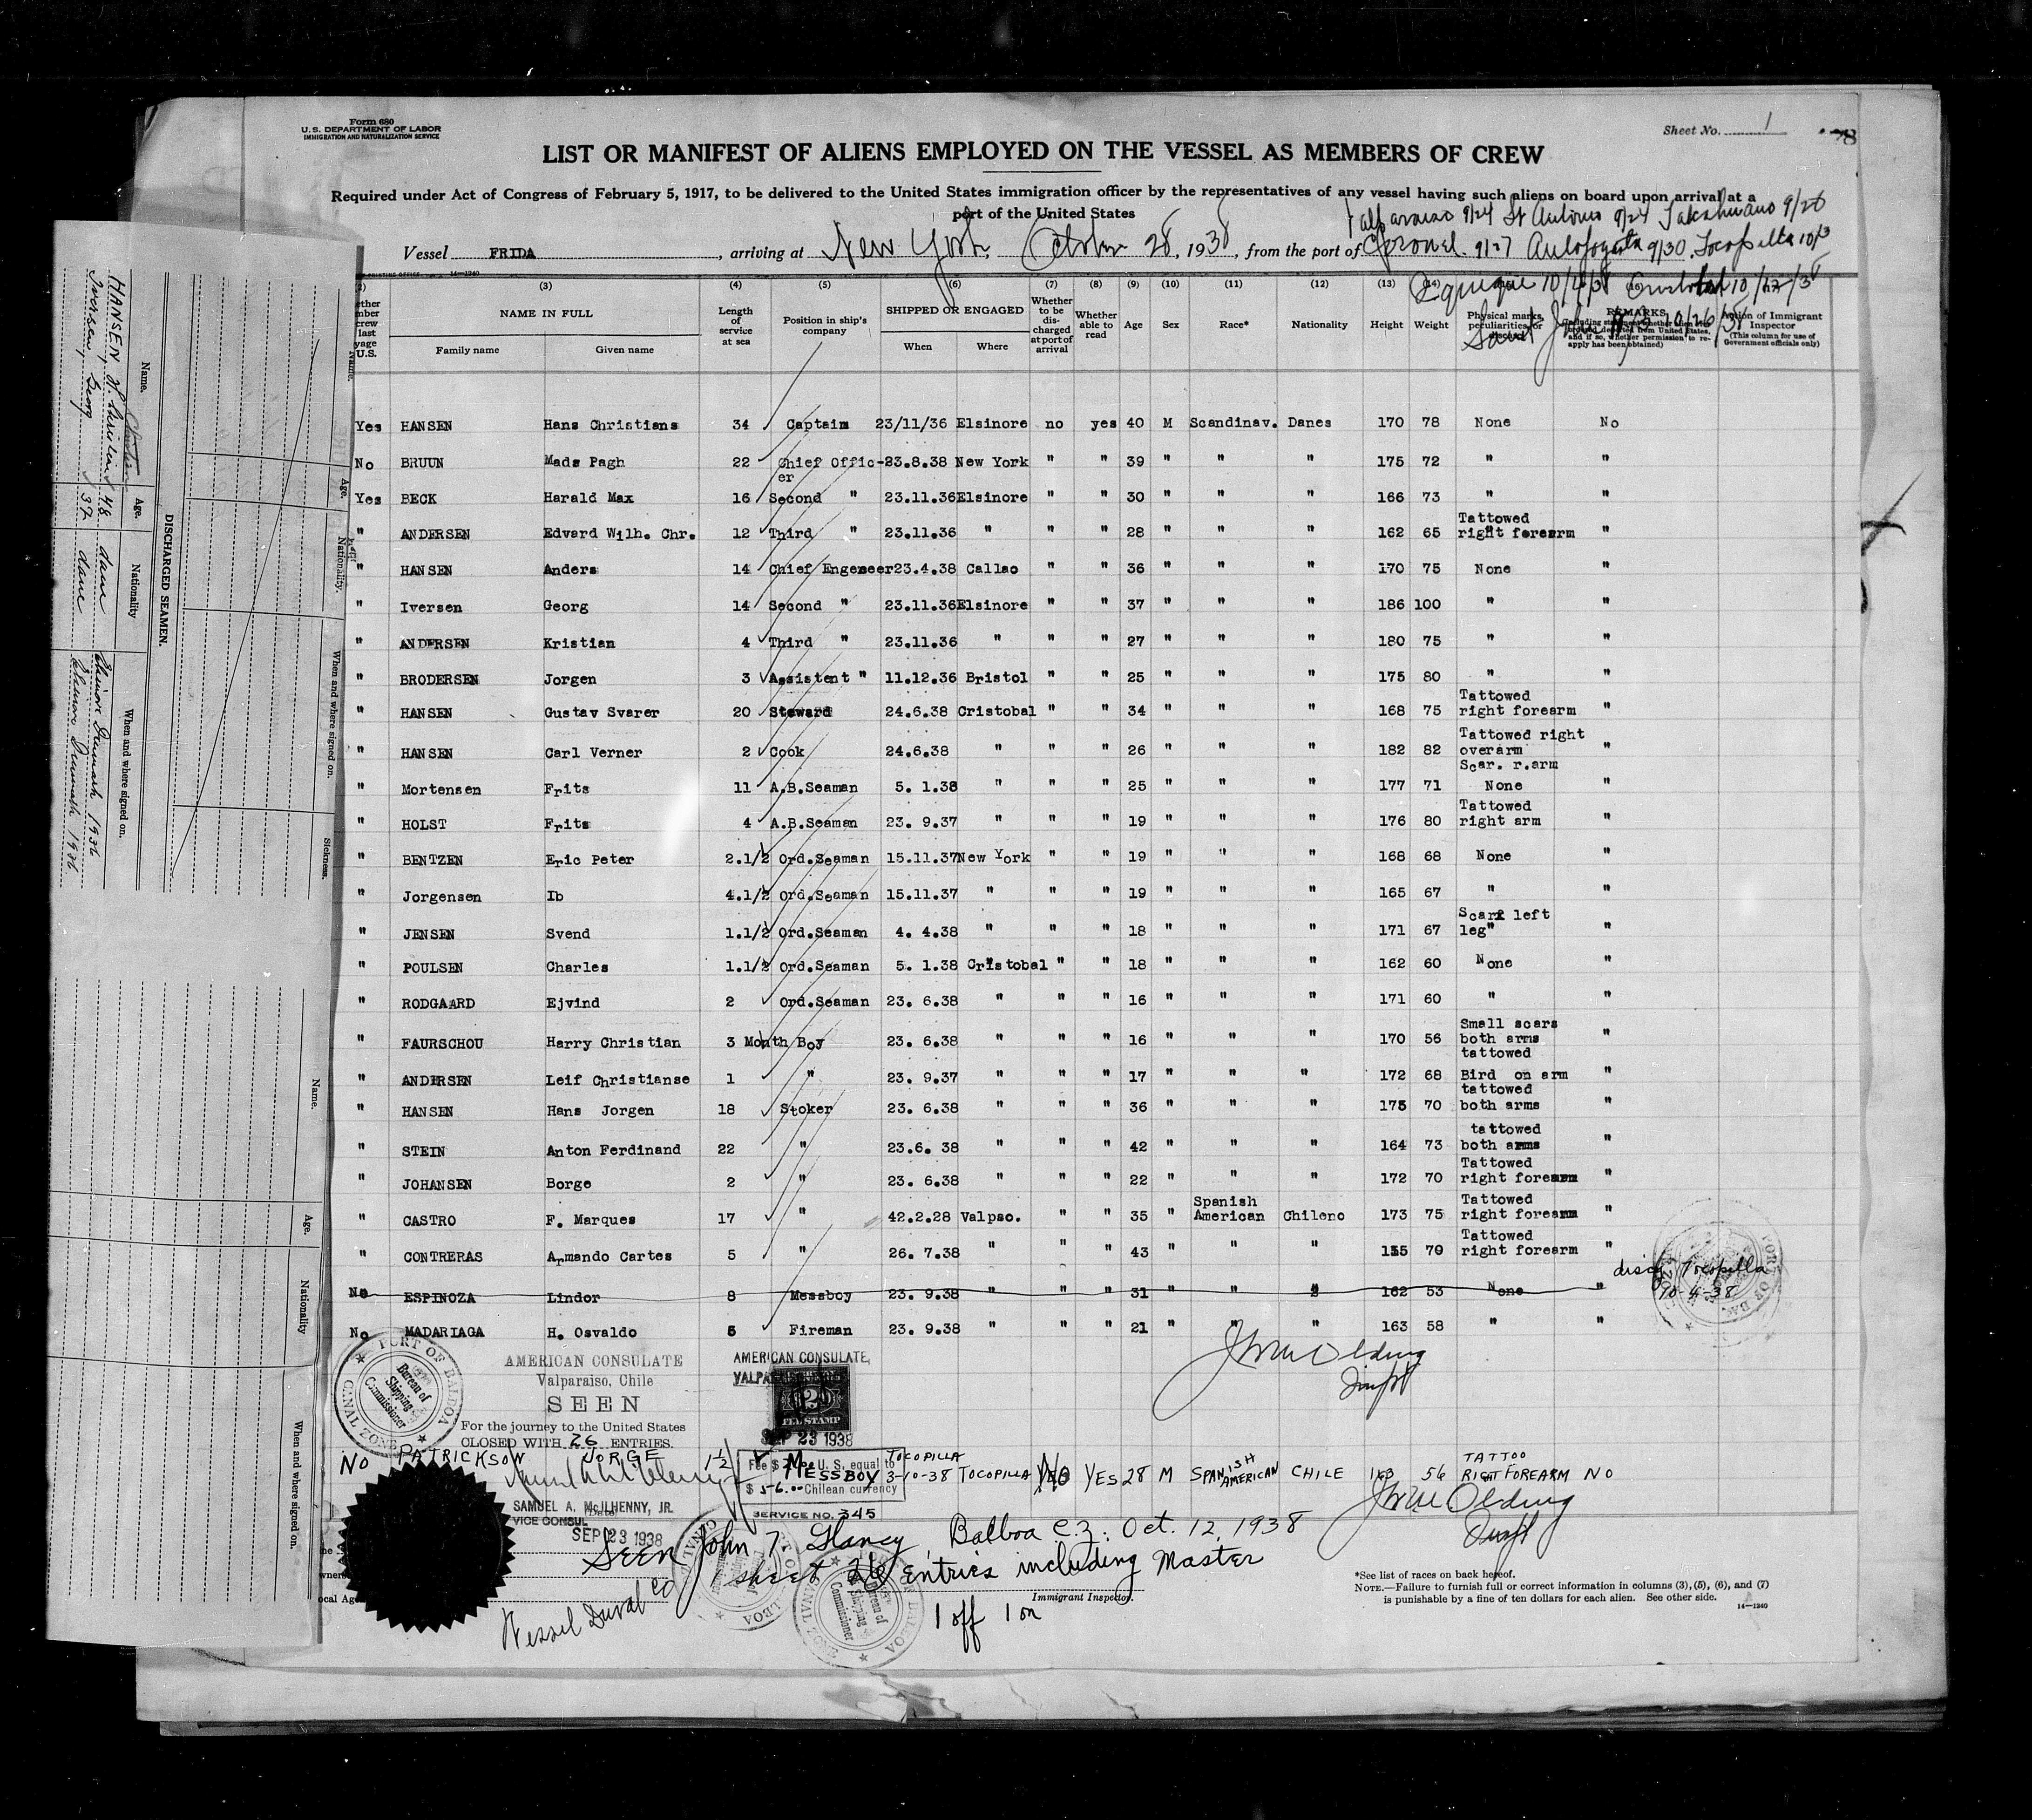 Form 680
U.S. DEPARTMENT OF LABOR
IMMIGRATION AND NATURALIZATION SERVICE
Sheet No. 1
LIST OR MANIFEST OF ALIENS EMPLOYED ON THE VESSEL AS MEMBERS OF CREW
Required under Act of Congress of February 5, 1917, to be delivered to the United States immigration officer by the representatives of any vessel having such aliens on board upon arrival at a
port of the United States
Valparaiso 9/24 St Antonio 9/24 Talcahuano 9/26
Vessel FRIDA, arriving at New York, October 28, 1938, from the port of Coronel. 9/27 Antofogasta 9/30. Tocopilla 10/3
Iquique 10/4/38 Cristobal 10/12/38
Saint John N.B. 10/26/38
(3) (4) (5) (6) (7) (8) (9) (10) (11) (12) (13) (14)
NAME IN FULL Length of service at sea Position in ship's company SHIPPED OR ENGAGED Whether to be discharged at port of arrival Whether able to read Age Sex Race* Nationality Height Weight Physical marks, peculiarities, or REMARKS Action of Immigrant Inspector
Family name Given name When Where (This column for use of Government officials only)
Yes HANSEN Hans Christians 34 Captain 23/11/36 Elsinore no yes 40 M Scandinav. Danes 170 78 None No
No BRUUN Mads Pagh 22 Chief Offic-er 23.8.38 New York " " 39 " " " 175 72 " "
Yes BECK Harald Max 16 Second " 23.11.36 Elsinore " " 30 " " " 166 73 " "
" ANDERSEN Edvard Wilh. Chr. 12 Third " 23.11.36 " " " 28 " " " 162 65 Tattowed right forearm "
" HANSEN Anders 14 Chief Engeneer 23.4.38 Callao " " 36 " " " 170 75 None "
" Iversen Georg 14 Second " 23.11.36 Elsinore " " 37 " " " 186 100 " "
" ANDERSEN Kristian 4 Third " 23.11.36 " " " 27 " " " 180 75 " "
" BRODERSEN Jorgen 3 Assistent " 11.12.36 Bristol " " 25 " " " 175 80 " "
" HANSEN Gustav Svarer 20 Steward 24.6.38 Cristobal " " 34 " " " 168 75 Tattowed right forearm "
" HANSEN Carl Verner 2 Cook 24.6.38 " " " 26 " " " 182 82 Tattowed right overarm Scar. r.arm "
" Mortensen Frits 11 A.B.Seaman 5. 1.38 " " " 25 " " " 177 71 None "
" HOLST Frits 4 A.B.Seaman 23. 9.37 " " " 19 " " " 176 80 Tattowed right arm "
" BENTZEN Eric Peter 2.1/2 Ord.Seaman 15.11.37 New York " " 19 " " " 168 68 None "
" Jorgensen Ib 4.1/2 Ord.Seaman 15.11.37 " " " 19 " " " 165 67 " "
" JENSEN Svend 1.1/2 Ord.Seaman 4. 4.38 " " " 18 " " " 171 67 Scarf left leg" "
" POULSEN Charles 1.1/2 Ord.Seaman 5. 1.38 Cristobal " " 18 " " " 162 60 None "
" RODGAARD Ejvind 2 Ord.Seaman 23. 6.38 " " " 16 " " " 171 60 " "
" FAURSCHOU Harry Christian 3 Month Boy 23. 6.38 " " " 16 " " " 170 56 Small scars both arms "
" ANDERSEN Leif Christianse 1 " 23. 9.37 " " " 17 " " " 172 68 tattowed Bird on arm "
" HANSEN Hans Jorgen 18 Stoker 23. 6.38 " " " 36 " " " 175 70 tattowed both arms "
" STEIN Anton Ferdinand 22 " 23.6. 38 " " " 42 " " " 164 73 tattowed both arms "
" JOHANSEN Borge 2 " 23. 6.38 " " " 22 " " " 172 70 Tattowed right forearm "
" CASTRO F. Marques 17 " 42.2.28 Valpso. " " 35 " Spanish American Chileno 173 75 Tattowed right forearm "
" CONTRERAS Armando Cartes 5 " 26. 7.38 " " " 43 " " " 155 79 Tattowed right forearm "
No ESPINOZA Lindor 8 Messboy 23. 9.38 " " " 31 " " " 162 53 None " disc. Tocopilla 10-4-38
No MADARIAGA H. Osvaldo 5 Fireman 23. 9.38 " " " 21 " " " 163 58 " "
PORT OF BALBOA
CANAL ZONE
Bureau of Shipping Commissioner
AMERICAN CONSULATE
Valparaiso, Chile
SEEN
For the journey to the United States
CLOSED WITH 26 ENTRIES.
AMERICAN CONSULATE,
FEE STAMP
SEP 23 1938
NO PATRICKSON JORGE 1½ MESSBOY TOCOPILLA 3-10-38 TOCOPILLA NO YES 28 M SPANISH AMERICAN CHILE 163 56 TATTOO RIGHT FOREARM NO
Fee $ U. S. equal to
$ Chilean currency
SERVICE NO. 345
SAMUEL A. McILHENNY, JR.
VICE CONSUL
SEP 23 1938
Seen John T. Glancy, Balboa C.Z. Oct. 12, 1938
sheet 26 Entries including Master
1 off 1 on
Wessel Duval Co
Immigrant Inspector.
*See list of races on back hereof.
NOTE.—Failure to furnish full or correct information in columns (3), (5), (6), and (7)
is punishable by a fine of ten dollars for each alien. See other side.
14—1240
DISCHARGED SEAMEN.
Name. Age. Nationality When and where signed on.
HANSEN, H. Christian 48 dane Elsinore Denmark 1936
Iversen, Georg 37 dane Elsinore Denmark 1936
Name. Age. Nationality. When and where signed on. Sickness.
Name. Age. Nationality When and where signed on.